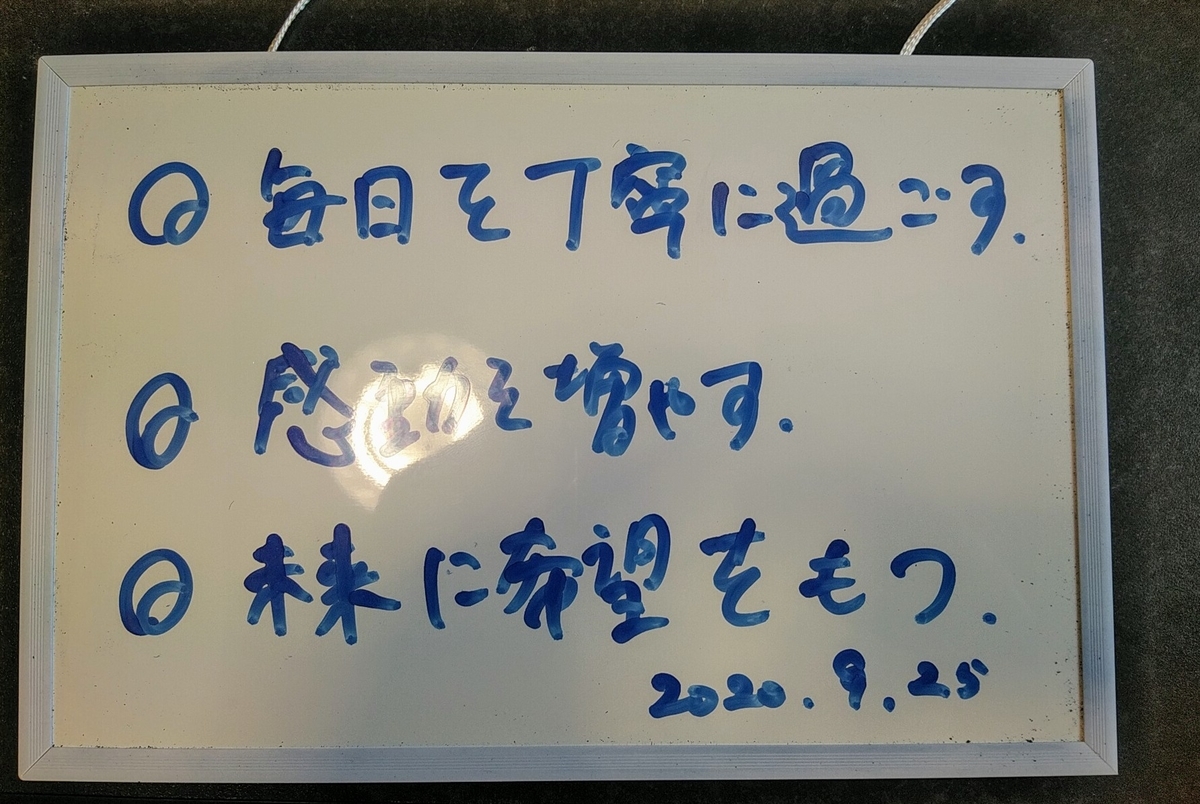 ◎ 毎日を丁寧に過ごす.
◎ 感動を増やす.
◎ 未来に希望をもつ.
2020.9.25